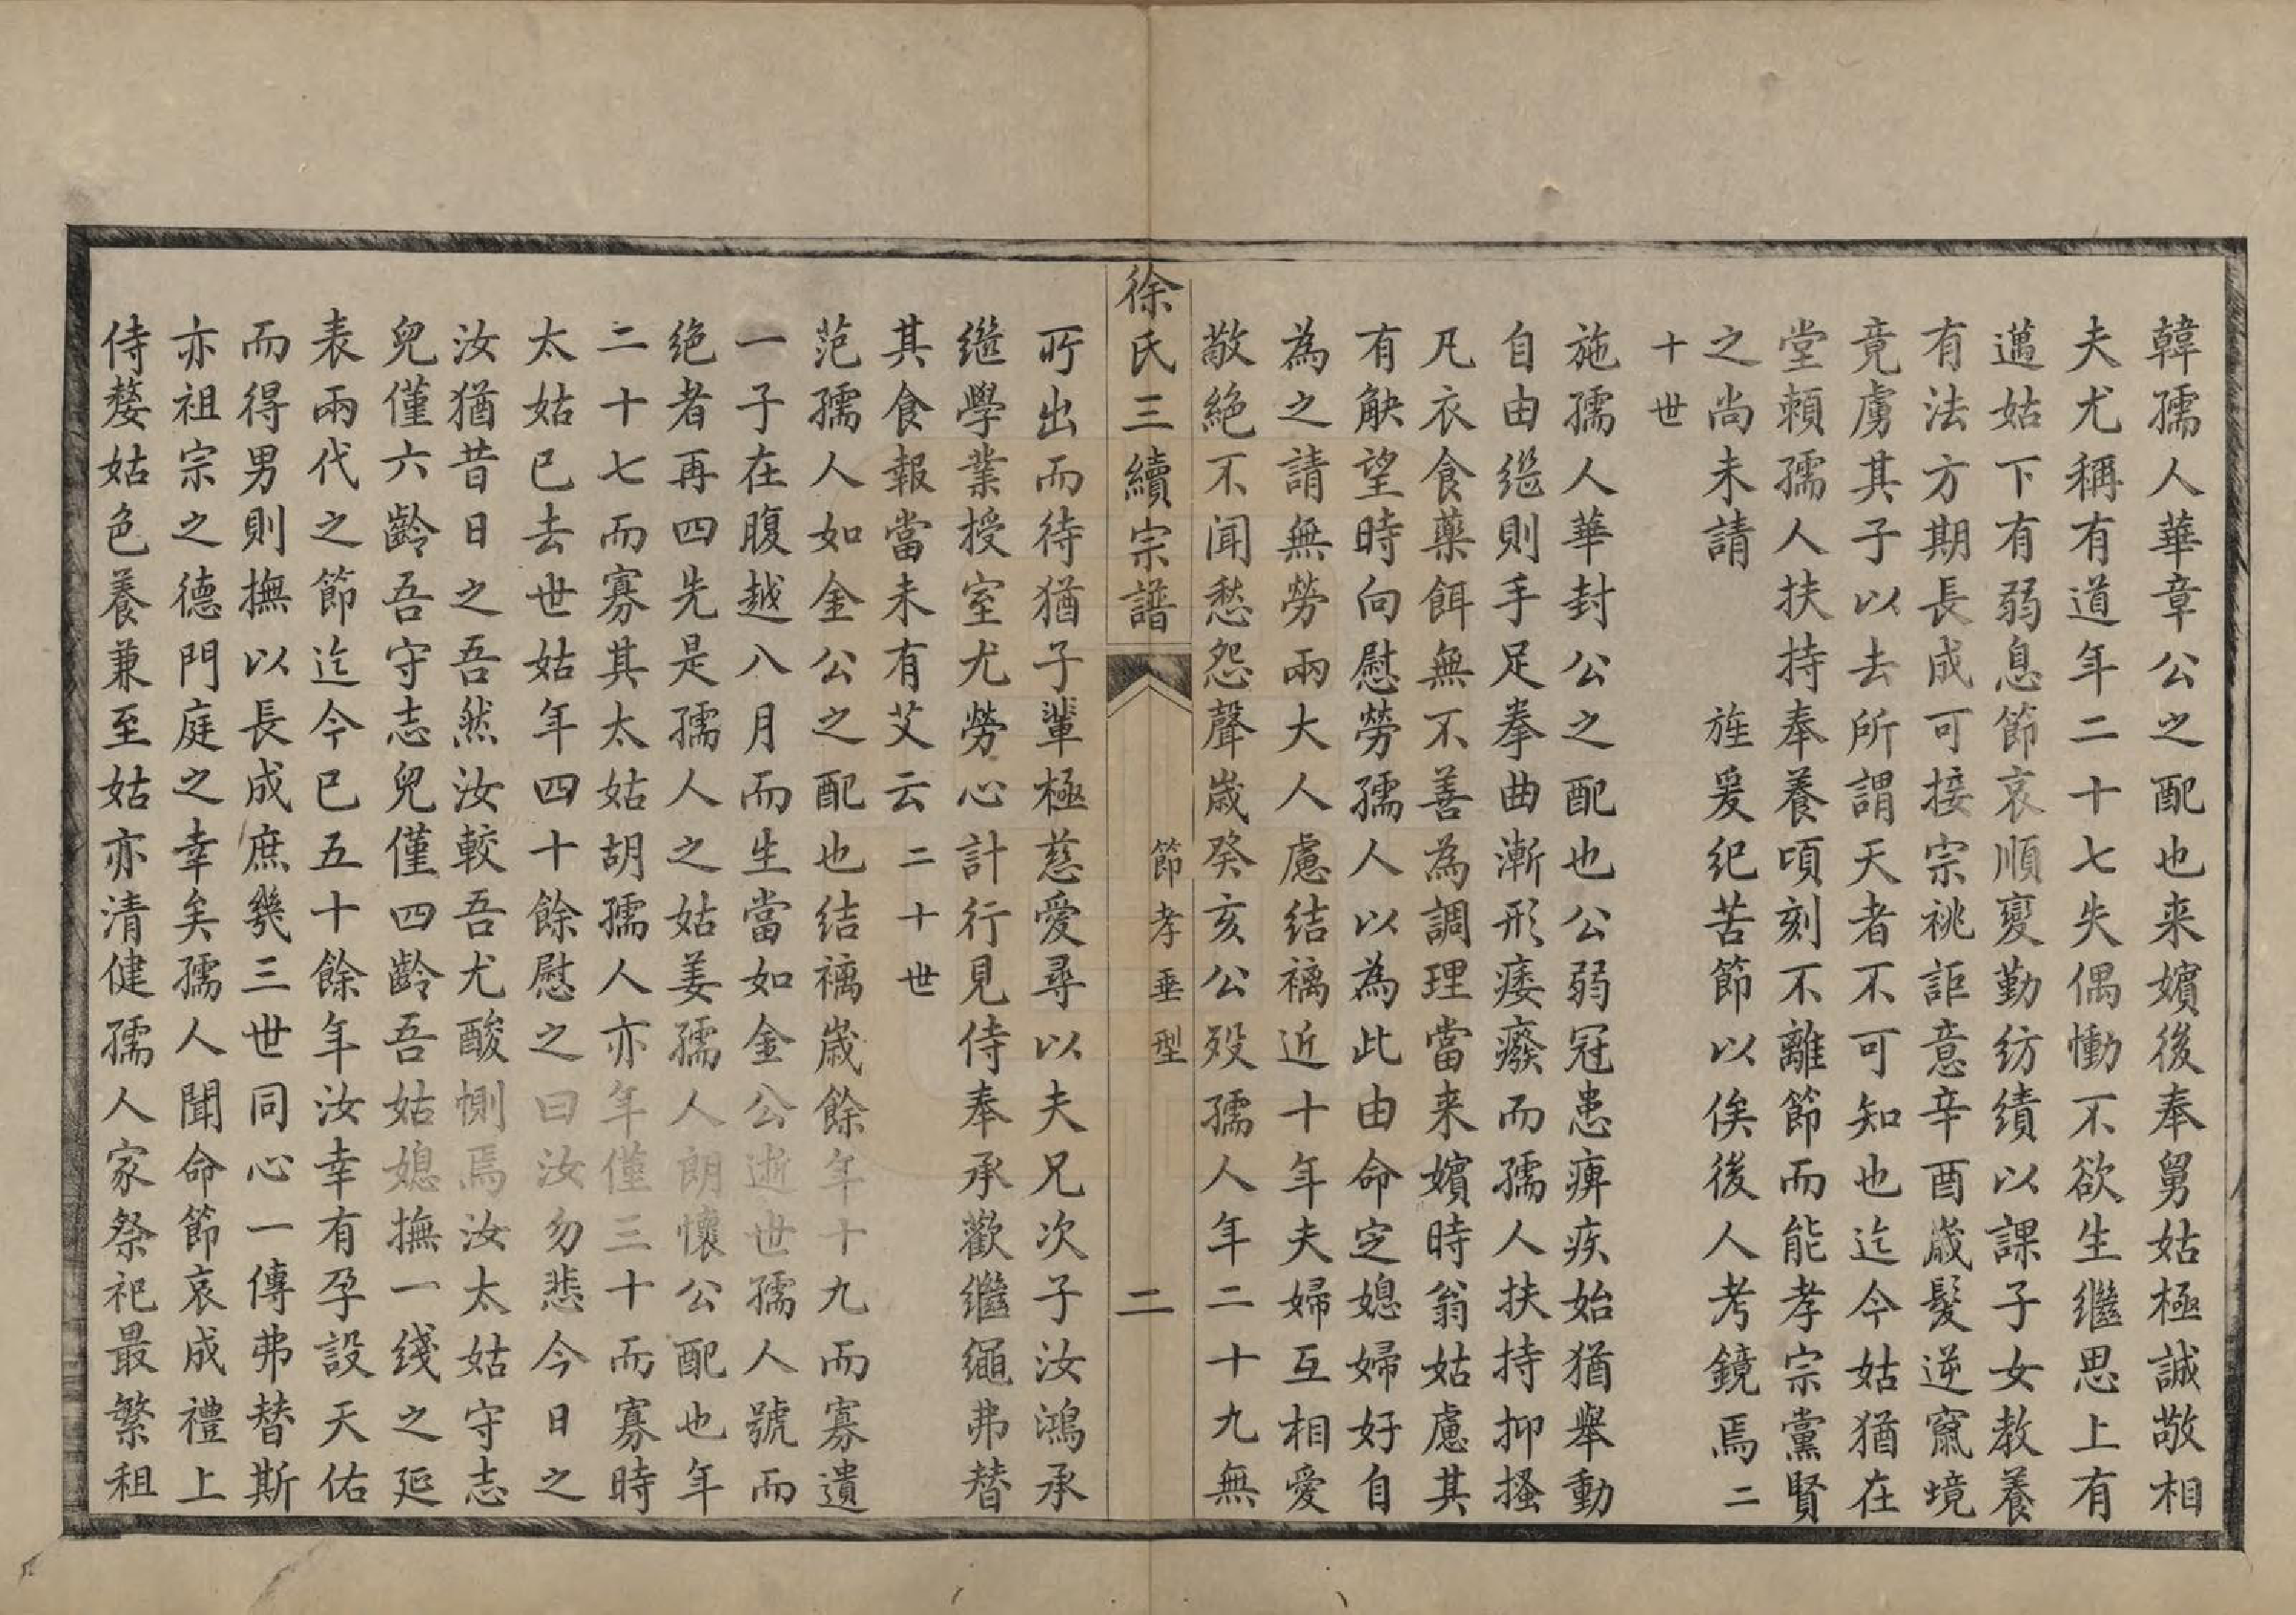 韓孺人華章公之配也来嬪後奉舅姑極誠敬相
夫尤稱有道年二十七失偶慟不欲生繼思上有
邁姑下有弱息節哀順變勤紡績以課子女教養
有法方期長成可接宗祧詎意辛酉歲髮逆竄境
竟虜其子以去所謂天者不可知也迄今姑猶在
堂賴孺人扶持奉養頃刻不離節而能孝宗黨賢
之尚未請　旌爰紀苦節以俟後人考鏡焉二
十世
施孺人華封公之配也公弱冠患痺疾始猶舉動
自由继則手足拳曲漸形痿癈而孺人扶持抑搔
凡衣食藥餌無不善為調理當来嬪時翁姑慮其
有觖望時向慰勞孺人以為此由命定媳婦好自
為之請無勞兩大人慮結褵近十年夫婦互相愛
敬絕不闻愁怨聲歲癸亥公歿孺人年二十九無
徐氏三續宗譜
節孝垂型
二
所出而待猶子輩極慈愛尋以夫兄次子汝鴻承
继學業授室尤勞心計行見侍奉承歡繼繩弗替
其食報當未有艾云二十世
范孺人如金公之配也结褵歲餘年十九而寡遺
一子在腹越八月而生當如金公逝世孺人號而
绝者再四先是孺人之姑姜孺人朗懷公配也年
二十七而寡其太姑胡孺人亦年僅三十而寡時
太姑已去世姑年四十餘慰之曰汝勿悲今日之
汝猶昔日之吾然汝較吾尤酸惻焉汝太姑守志
兒僅六齡吾守志兒僅四齡吾姑媳撫一綫之延
表兩代之節迄今已五十餘年汝幸有孕設天佑
而得男則撫以長成庶幾三世同心一傳弗替斯
亦祖宗之德門庭之幸矣孺人聞命節哀成禮上
侍嫠姑色養兼至姑亦清健孺人家祭祀最繁租